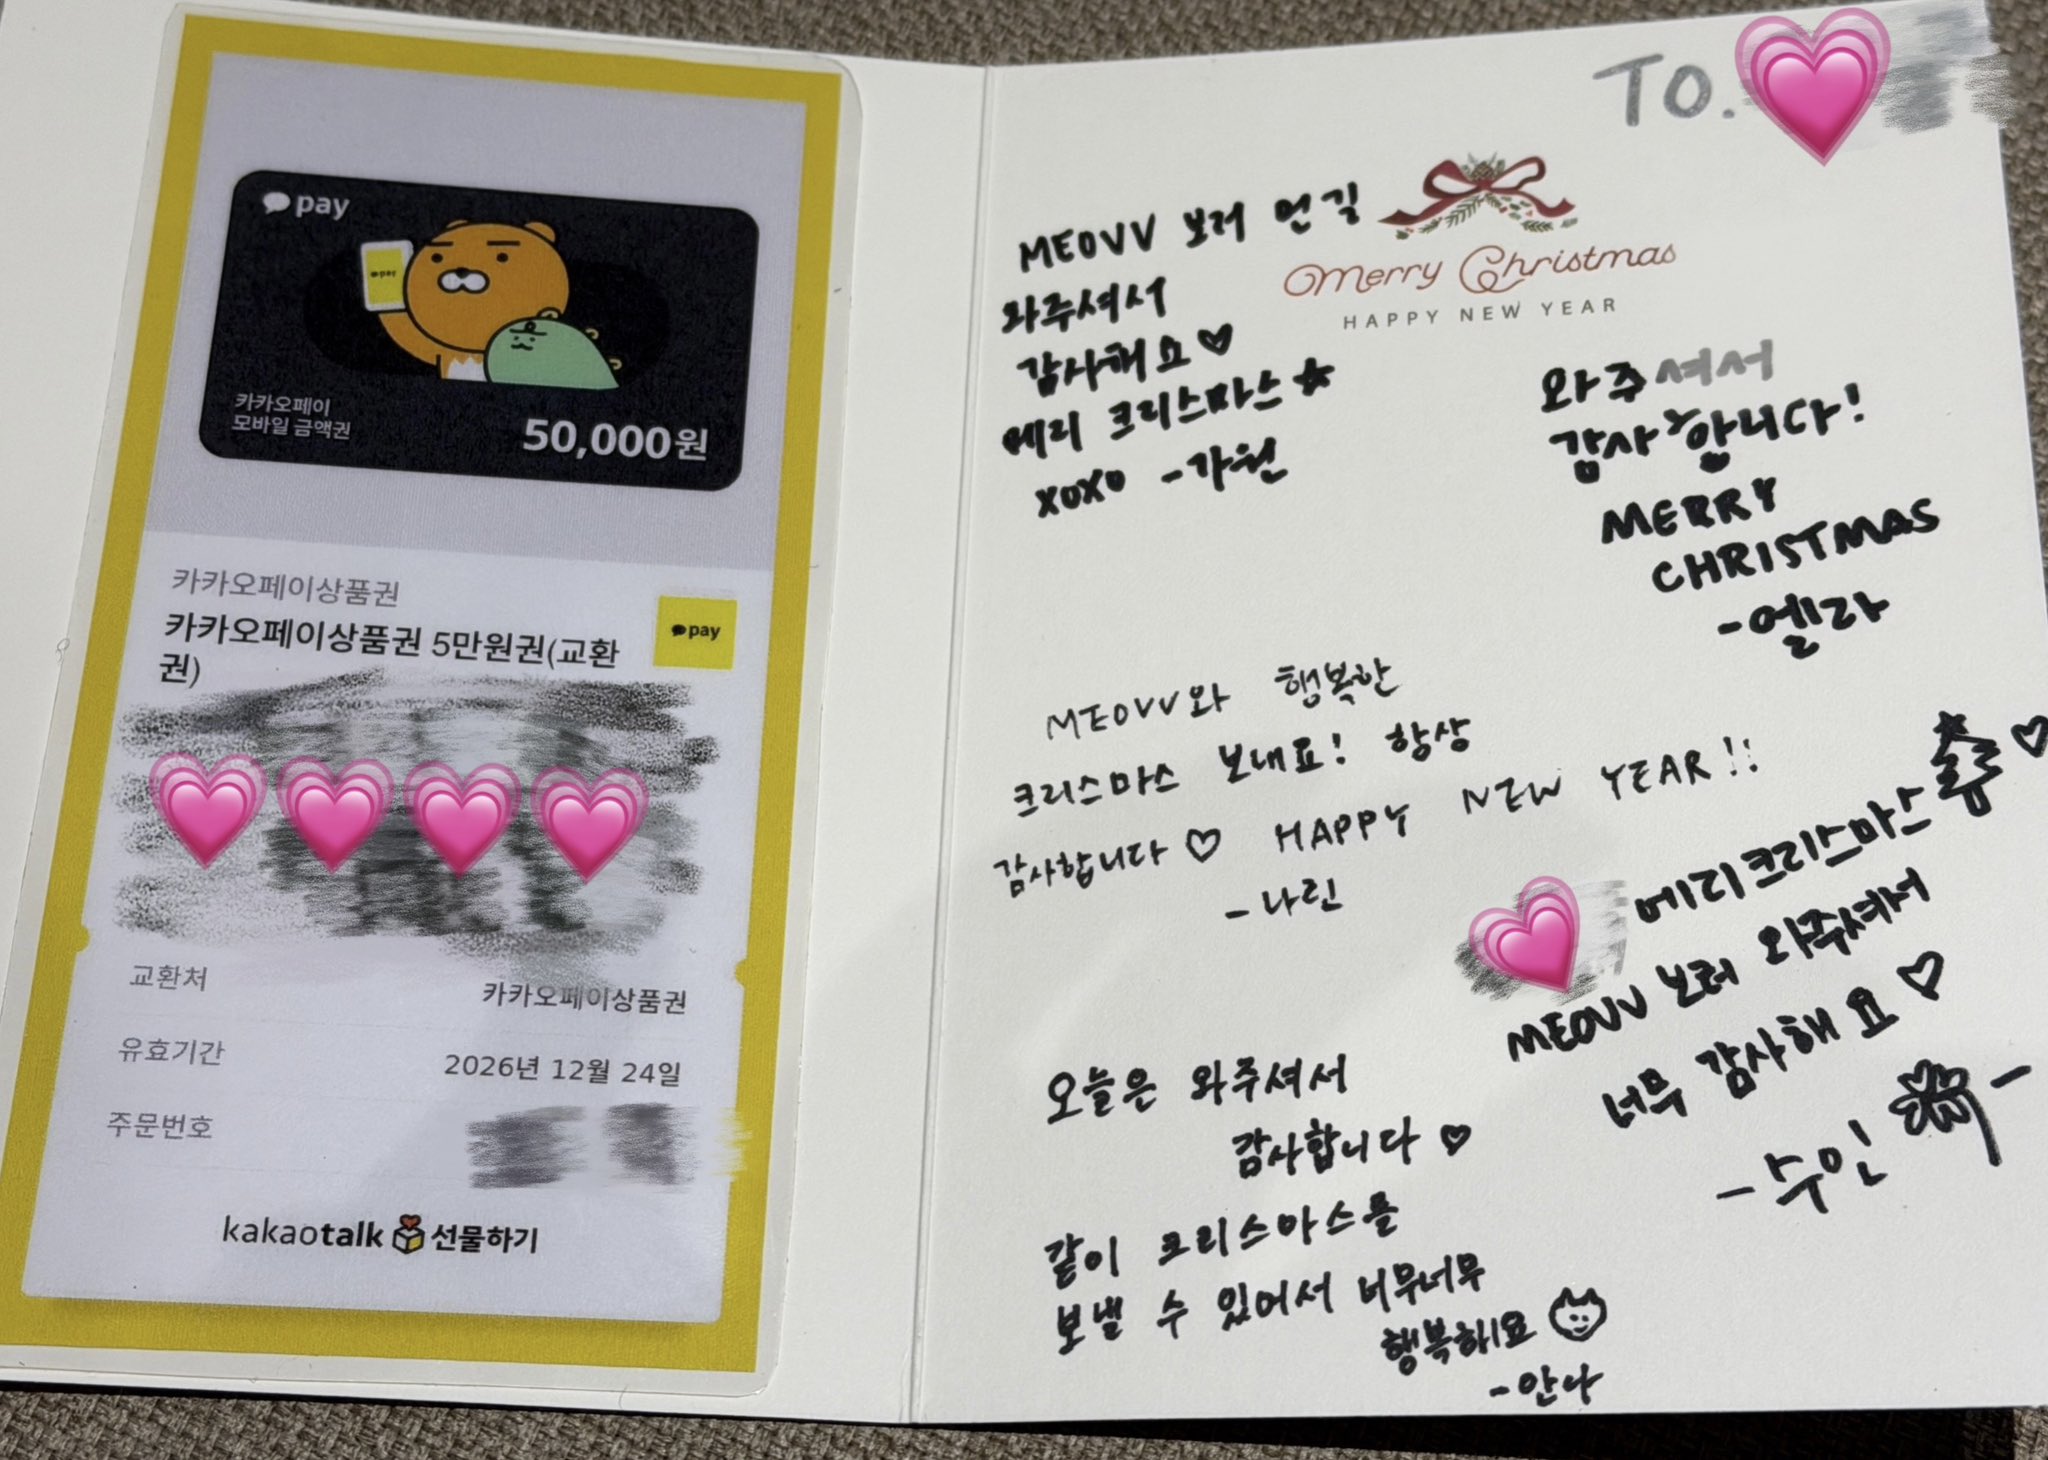 pay
pay
카카오페이
모바일 금액권
50,000원
카카오페이상품권
카카오페이상품권 5만원권(교환
권)
pay
교환처 카카오페이상품권
유효기간 2026년 12월 24일
주문번호
kakaotalk 선물하기
TO.
Merry Christmas
HAPPY NEW YEAR
MEOVV 보러 먼길
와주셔서
감사해요♡
메리 크리스마스★
xoxo -가원
와주셔서
감사합니다!
MERRY
CHRISTMAS
-엘라
MEOVV와 행복한
크리스마스 보내요! 항상
감사합니다♡ HAPPY NEW YEAR!!
-나린
메리크리스마스♡
MEOVV 보러 와주셔서
너무 감사해요♡
-수인-
오늘은 와주셔서
감사합니다♡
같이 크리스마스를
보낼 수 있어서 너무너무
행복해요
-안나